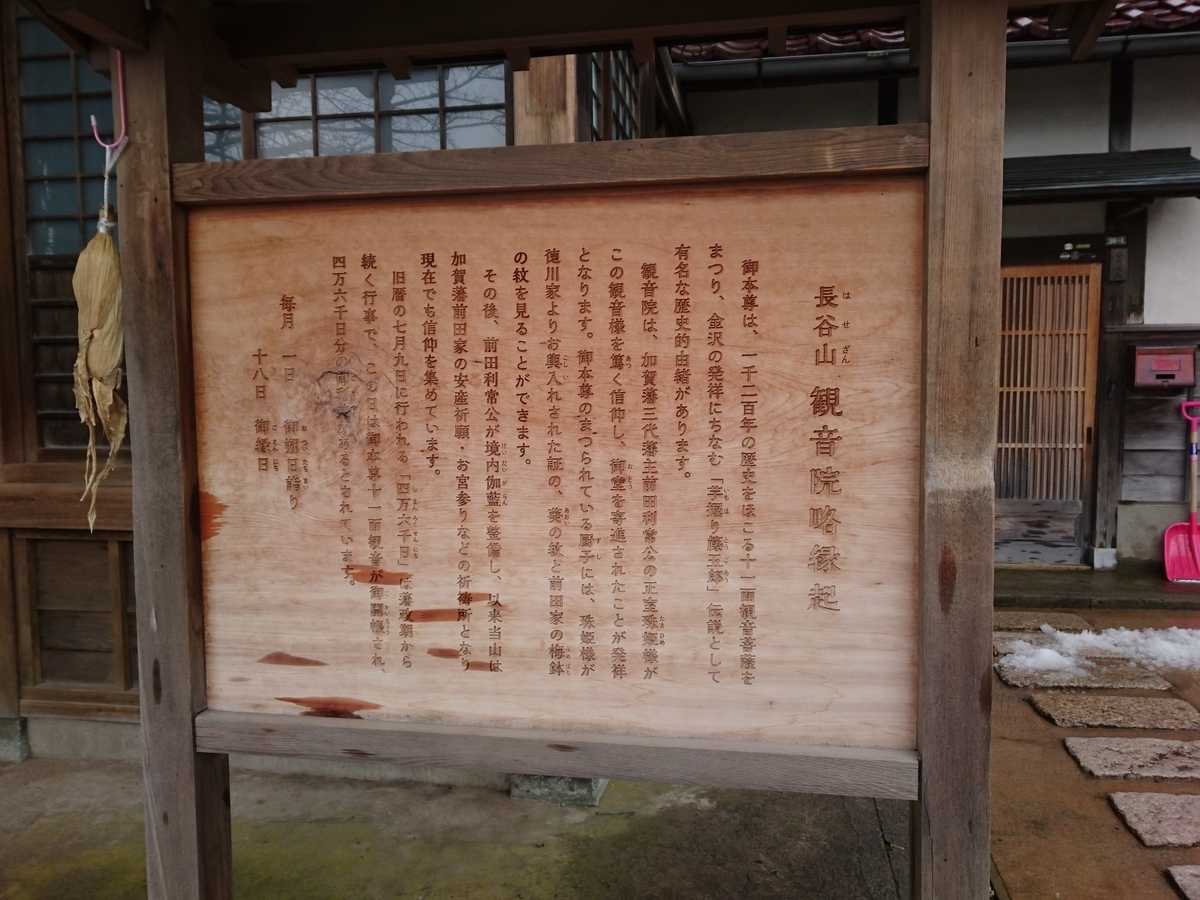 長谷山 観音院略縁起
は せ ざん
御本尊は、一千二百年の歴史をほこる十一面観音菩薩を
まつり、金沢の発祥にちなむ「芋掘り藤五郎」伝説として
有名な歴史的由緒があります。
観音院は、加賀藩三代藩主前田利常公の正室珠姫様が
この観音様を篤く信仰し、御堂を寄進されたことが発祥
となります。御本尊のまつられている厨子には、珠姫様が
徳川家よりお輿入れされた証の、葵の紋と前田家の梅鉢
の紋を見ることができます。
その後、前田利常公が境内伽藍を整備し、以来当山は
加賀藩前田家の安産祈願・お宮参りなどの祈祷所となり
現在でも信仰を集めています。
旧暦の七月九日に行われる「四万六千日」は藩政期から
続く行事で、この日は御本尊十一面観音が御開帳され、
四万六千日分の御利益があるとされています。
毎月 一日 御朔日詣り
十八日 御縁日